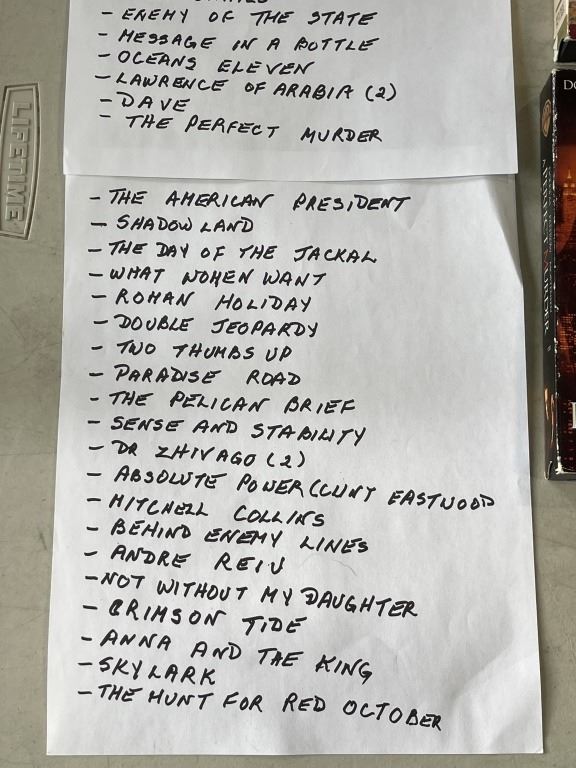 - ENEMY OF THE STATE
- MESSAGE IN A BOTTLE
- OCEANS ELEVEN
- LAWRENCE OF ARABIA (2)
- DAVE
- THE PERFECT MURDER
- THE AMERICAN PRESIDENT
- SHADOW LAND
- THE DAY OF THE JACKAL
- WHAT WOMEN WANT
- ROMAN HOLIDAY
- DOUBLE JEOPARDY
- TWO THUMBS UP
- PARADISE ROAD
- THE PELICAN BRIEF
- SENSE AND STABILITY
- DR ZHIVAGO (2)
- ABSOLUTE POWER (CLINT EASTWOOD
- MITCHELL COLLINS
- BEHIND ENEMY LINES
- ANDRE REIU
- NOT WITHOUT MY DAUGHTER
- CRIMSON TIDE
- ANNA AND THE KING
- SKYLARK
- THE HUNT FOR RED OCTOBER
LIFETIME